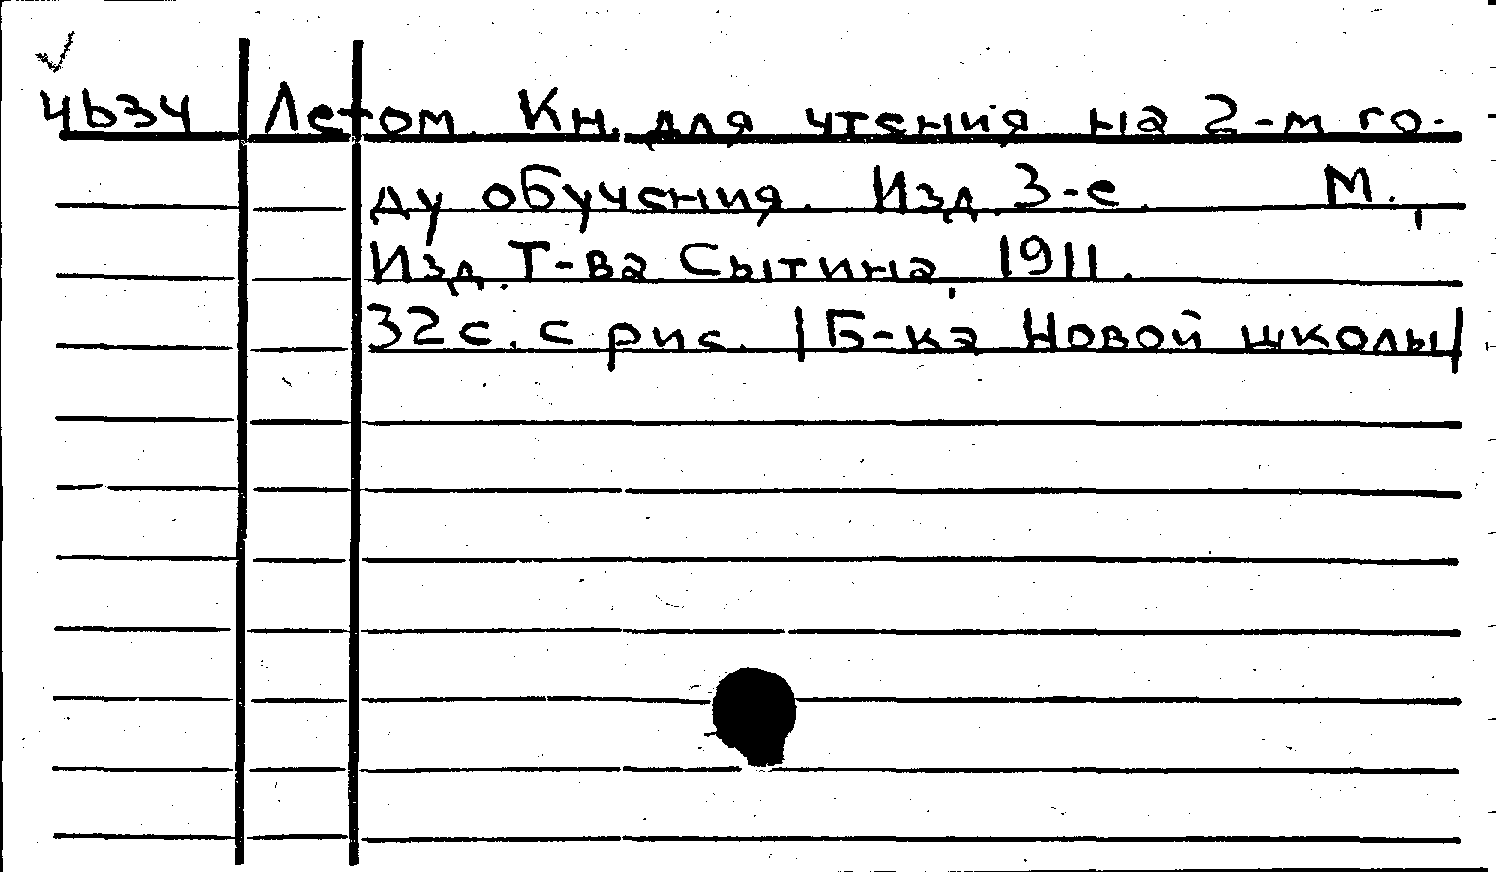 ЧЬЗЧ Летом. Кн. для чтения на 2-м го-
ду обучения. Изд. 3-е. М.,
Изд. Т-ва Сытина, 1911.
32 с. с рис. |Б-ка Новой школы|